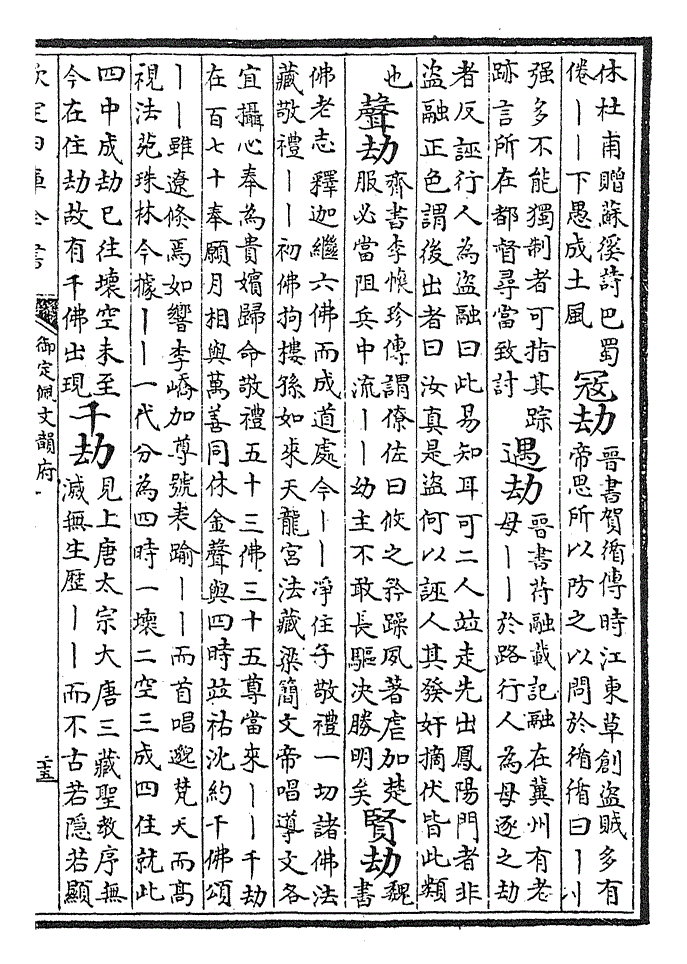 休杜甫贈蘇徯詩巴蜀
倦丨丨下愚成土風
寇劫
晉書賀循傳時江東草創盜賊多有
帝思所以防之以問於循循曰丨丨
强多不能獨制者可指其踪
跡言所在都督尋當致討
遇劫
晉書苻融載記融在冀州有老
母丨丨於路行人為母逐之劫
者反誣行人為盜融曰此易知耳可二人竝走先出鳳陽門者非
盜融正色謂後出者曰汝真是盜何以誣人其發奸摘伏皆此類
也
聲劫
齊書李懊珍傳謂僚佐曰攸之矜躁夙著虐加楚
服必當阻兵中流丨丨幼主不敢長驅决勝明矣
賢劫
魏
書
佛老志釋迦繼六佛而成道處今丨丨淨住子敬禮一切諸佛法
藏敬禮丨丨初佛拘樓孫如來天龍宮法藏梁簡文帝唱導文各
宜攝心奉為貴嬪歸命敬禮五十三佛三十五尊當來丨丨千劫
在百七十奉願月相與萬善同休金聲與四時竝祐沈約千佛頌
丨丨雖遼倏焉如響李嶠加尊號表踰丨丨而首唱邈梵天而高
視法苑珠林今據丨丨一代分為四時一壞二空三成四住就此
四中成劫已往壞空未至
今在住劫故有千佛出現
千劫
見上唐太宗大唐三藏聖教序無
滅無生歷丨丨而不古若隱若顯
欽定四庫全書
御定佩文韻府
二十五